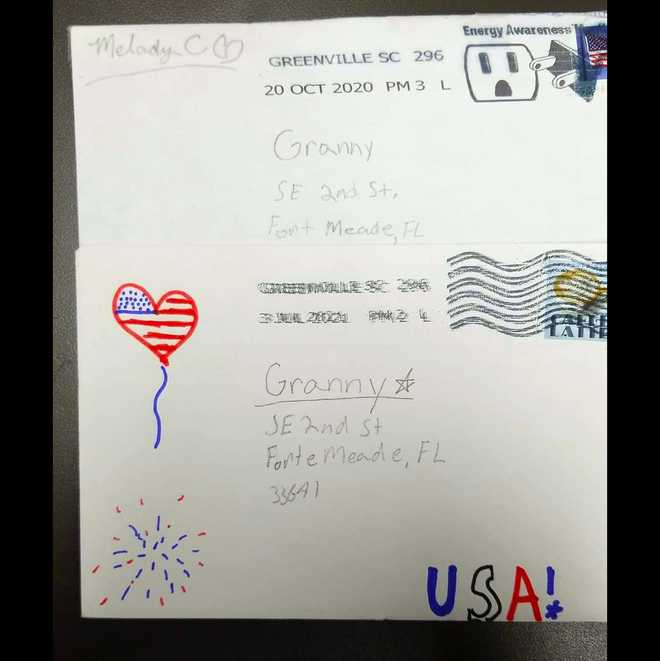 Melady C
GREENVILLE SC 296
20 OCT 2020 PM 3 L
Energy Awareness
Granny
SE 2nd St.
Fort Meade, FL
GREENVILLE SC 296
3 JUL 2021 PM 2 L
LATTE
Granny
SE 2nd St
Forte Meade, FL
33841
USA!